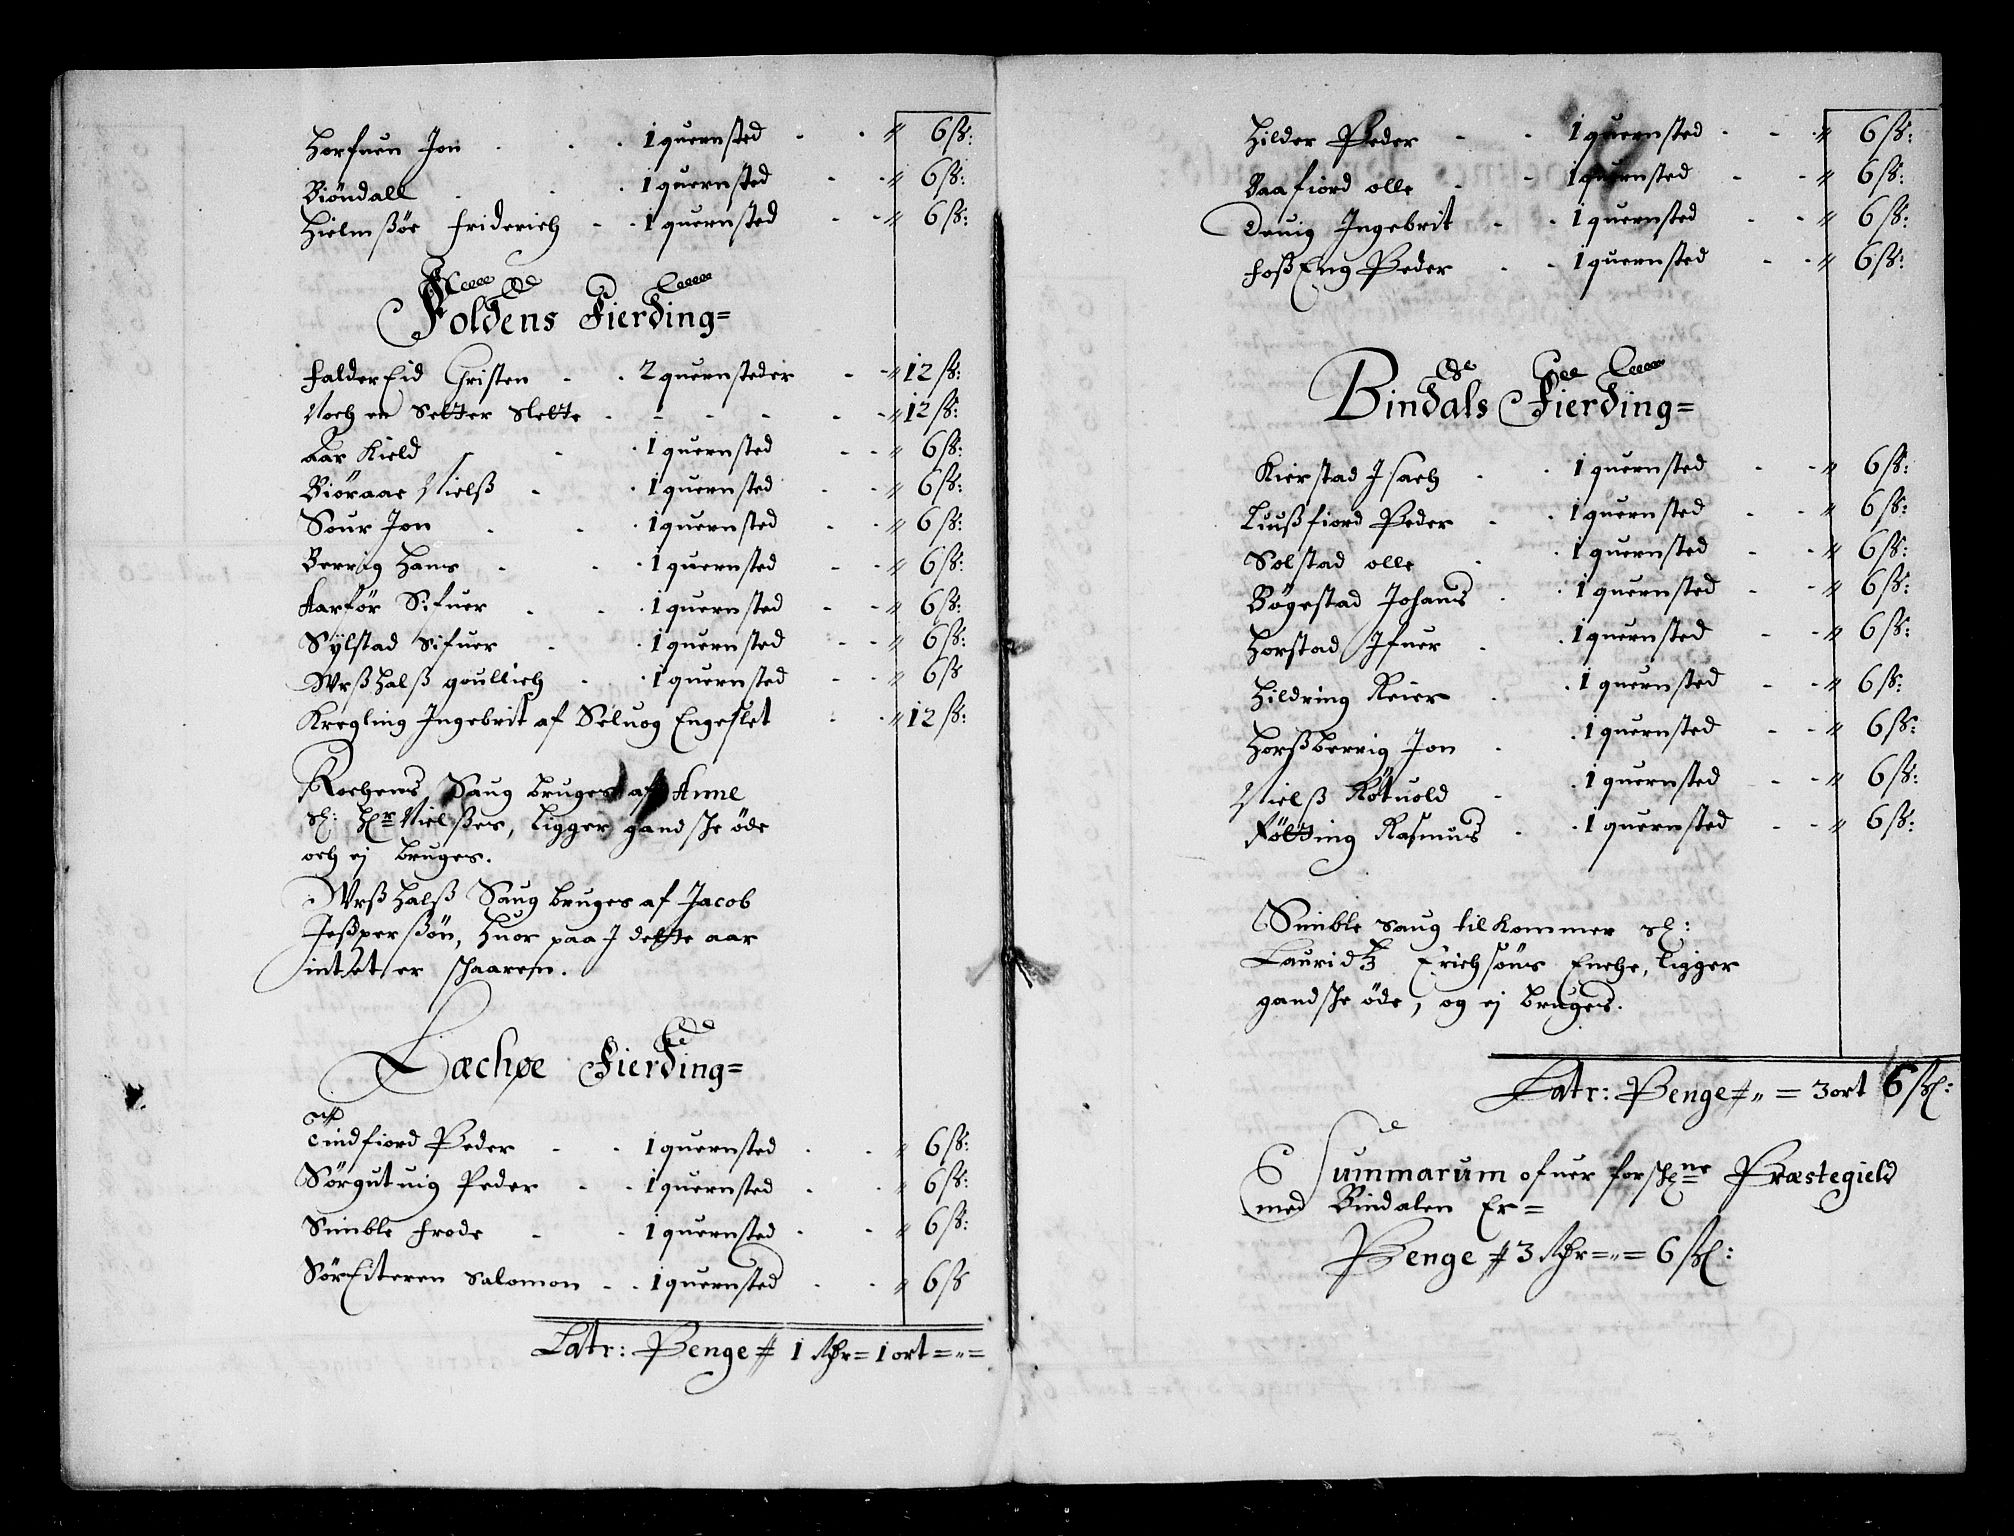 Horfuen Jon - - 1 quernsted - - " 6 ß:
Biöndall - - 1 quernsted - - " 6 ß:
Hielmßöe Friderich - - 1 quernsted - - " 6 ß:
Foldens Fierding=
Falder Eid Christen - - 2 quernsteder - - " 12 ß:
Noch en Setter Slette - - - - - " 12 ß:
Aar Kield - - 1 quernsted - - " 6 ß:
Biöraae Nielß - - 1 quernsted - - " 6 ß:
Sour Jon - - 1 quernsted - - " 6 ß:
Berrig Hans - - 1 quernsted - - " 6 ß:
Aarför Sifuer - - 1 quernsted - - " 6 ß:
Sÿlstad Sifuer - - 1 quernsted - - " 6 ß:
Wrßhalß goullich - - 1 quernsted - - " 6 ß
Kregling Ingebrit af Seluog Engeslet - - " 12 ß:
Kochens Saug bruges af Anne
Sl: Hr Nielßes, ligger gandsche öde
och ej bruges.
Wrßhalß Saug bruges af Jacob
Jeßperßön, huor paa J dette aar
intet er schaaren.
Læchøe Fierding=
Eindfiord Peder - - 1 quernsted - - " 6 ß:
Sörgutuig Peder - - 1 quernsted - - " 6 ß:
Simble Frode - - 1 quernsted - - " 6 ß:
Sör Eiteren Salomon - - 1 quernsted - - " 6 ß
Latr: Penge # 1 Rdr = 1 ort = " =
Hilder Peder - - 1 quernsted - - " 6 ß:
Baafiord olle - - 1 quernsted - - " 6 ß:
Deuig Ingebrit - - 1 quernsted - - " 6 ß:
Foß Eng Peder - - 1 quernsted - - " 6 ß:
Bindals Fierding=
Kierstad Isach - - 1 quernsted - - " 6 ß:
Liußfiord Peder - - 1 quernsted - - " 6 ß:
Solstad olle - - 1 quernsted - - " 6 ß:
Bögestad Johans - - 1 quernsted - - " 6 ß:
Horstad Ifuer - - 1 quernsted - - " 6 ß:
Hildring Reier - - 1 quernsted - - " 6 ß:
Horßberrig Jon - - 1 quernsted - - " 6 ß:
Nielß Kötuold - - 1 quernsted - - " 6 ß:
Fölting Rasmus - - 1 quernsted - - " 6 ß:
Simble saug tilkommer Sl:
Lauridtz Erichsöns Enche, ligger
gandsche öde, og ej bruges.
Latr: Penge # " = 3 ort 6 ßl:
Summarum ofuer forschne Præstegield
med Bindalen Er =
Penge # 3 Rdr = " = 6 ßl: